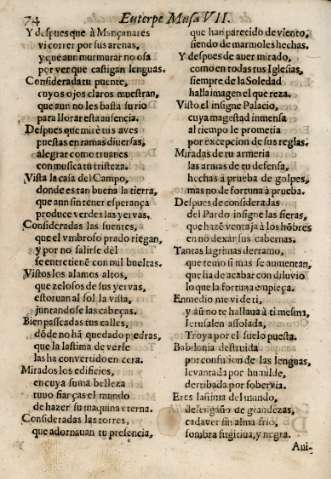 74 Euterpe Musa VII.
Y despues que à Mançanares
vi correr por sus arenas,
y que aun murmurar no osa
por ver que castigan lenguas.
Considerada tu puente,
cuyos ojos claros muestran,
que aun no les basta su rio
para llorar esta ausencia.
Despues que mirè tus aves
puestas en ramas diversas,
alegrar como truenes
con musica tu tristeza.
Vista la casa del Campo,
donde es tan buena la tierra,
que aun sin tener esperança
produce verdes las yervas,
Consideradas las fuentes,
que el vmbroso prado riegan,
y por no salirse del
se entretienẽ con mil bueltas.
Vistos los alamos altos,
que zelosos de sus yervas,
estorvan al sol la vista,
juntandose las cabeças.
Bien passeadas tus calles,
dõde no hã quedado piedras,
que la lastima de verte
las ha convertido en cera.
Mirados los edificios,
en cuya suma belleza
tuvo fianças el mundo
de hazer su maquina eterna.
Consideradas las torres,
que adornavan tu presencia,
que han parecido de viento,
siendo de marmoles hechas.
Y despues de aver mirado,
como en todas tus Iglesias,
siempre de la Soledad
halla imagen el que reza.
Visto el insigne Palacio,
cuya magestad inmensa
al tiempo le prometia
por excepcion de sus reglas.
Miradas de tu armeria
las armas de tu defensa,
hechas a prueba de golpes,
mas no de fortuna à prueba.
Despues de consideradas
del Pardo insigne las fieras,
que hazẽ ventaja à los hõbres
en no dexar sus cabernas.
Tantas lagrimas derramo,
que temo si mas se aumentan,
que ha de acabar con diluvio
lo que la fortuna empieça.
En medio me vi de ti,
y aũ no te hallava à ti mesma,
Ierusalen assolada,
Troya por el suelo puesta.
Babilonia destruida
por confusion de las lenguas,
levantada por humilde,
derribada por sobervia.
Eres lastima del mundo,
desengaño de grandezas,
cadaver sin alma frio,
sombra fugitiua, y negra.
Aui-